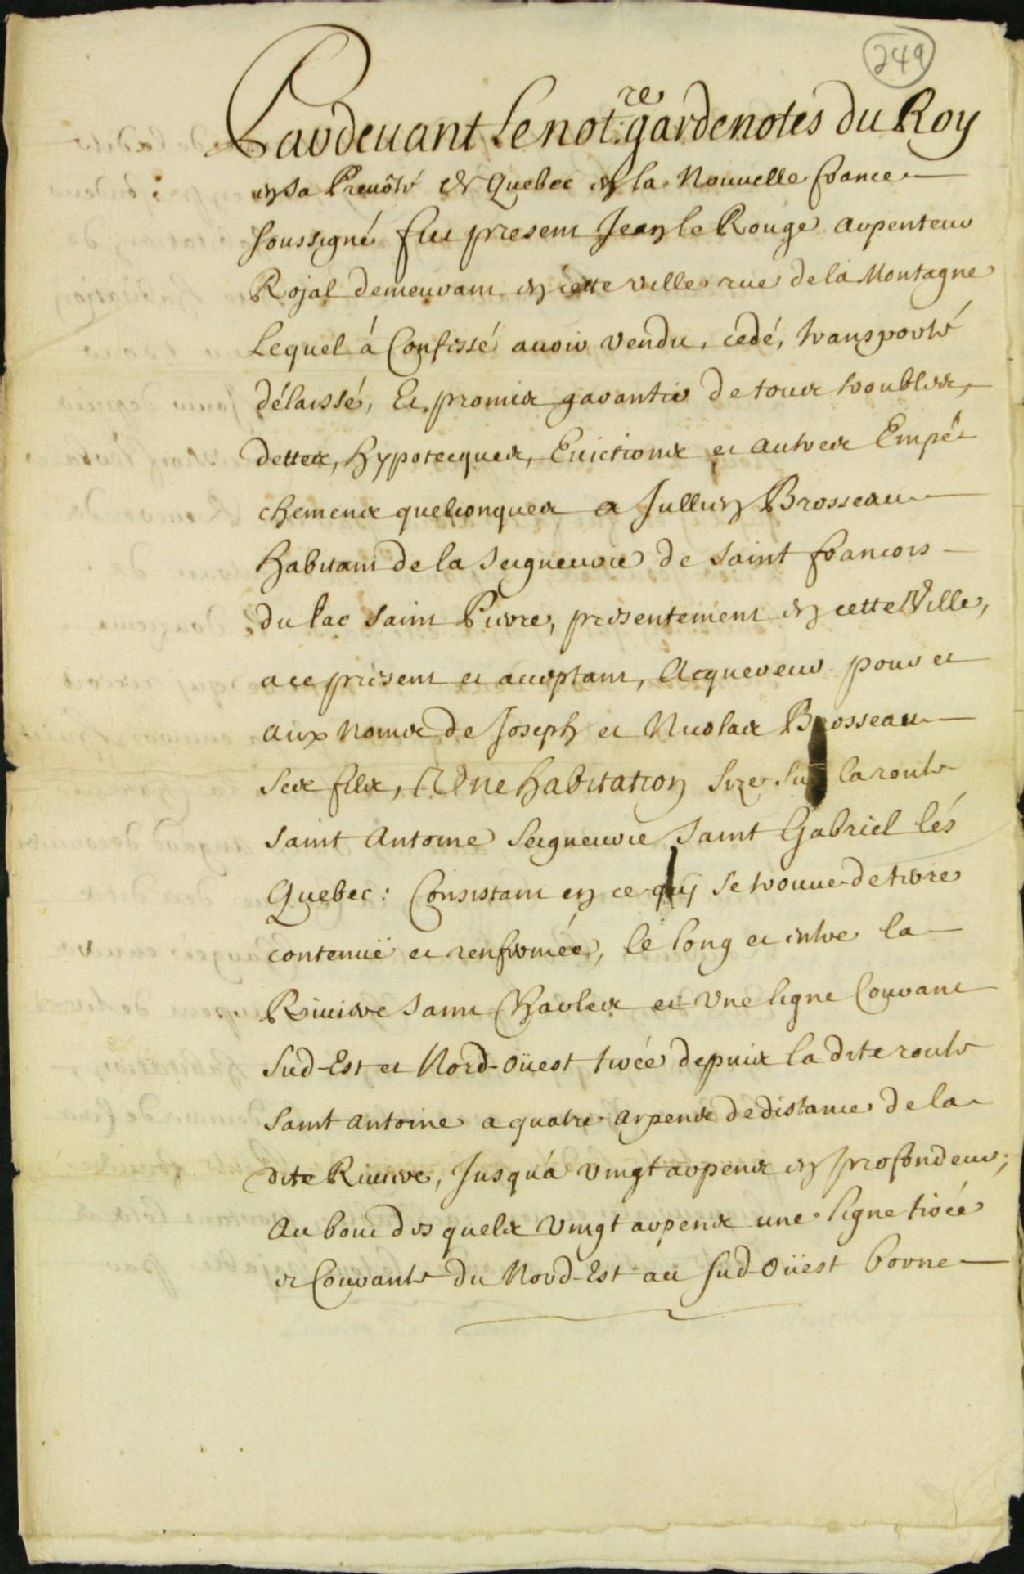 249
Pardeuant Le not.re gardenotes du Roy
en sa Preuôté de Quebec en la Nouuelle france
soussigné fut present Jean le Rouge arpenteur
Rojal demeurant en cette ville rue de la Montagne
Lequel á Confessé auoir vendu, cédé, transporté
délaissé, Et promis garantir de tous troubles,
dettes, hypotecques, Euictions et autres Empé-
chemens quelconques a Jullien Brosseau
habitant de la seigneurie de saint francois
du lac saint Pierre, presentement en cette Ville,
a ce présent et acceptant, Acquereur pour et
aux noms de Joseph et Nicolas Brosseau
ses fils, Une habitation size sur la route
saint Antoine seigneurie saint Gabriel lés
Quebec: Consistant en ce quy se trouue de terre
contenuë et renfermée, le long et entre la
Riuiere saint Charles et vne ligne Courant
sud-Est et Nord-oüest tirée depuis la dite route
saint Antoine a quatre arpens de distance de la
dite Riuiere, Jusqu'a vingt arpens en profondeur;
Au bout des quels vingt arpens une ligne tirée
et Courante du Nord-Est au sud-oüest borne